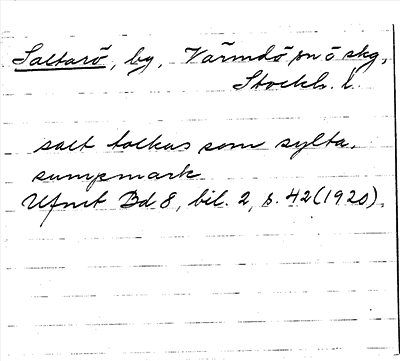 Saltarö, by, Värmdö sn o skg,
Stockh. l.
salt tolkas som sylta,
sumpmark
Ufmt Bd 8, bil. 2, s. 42 (1920).